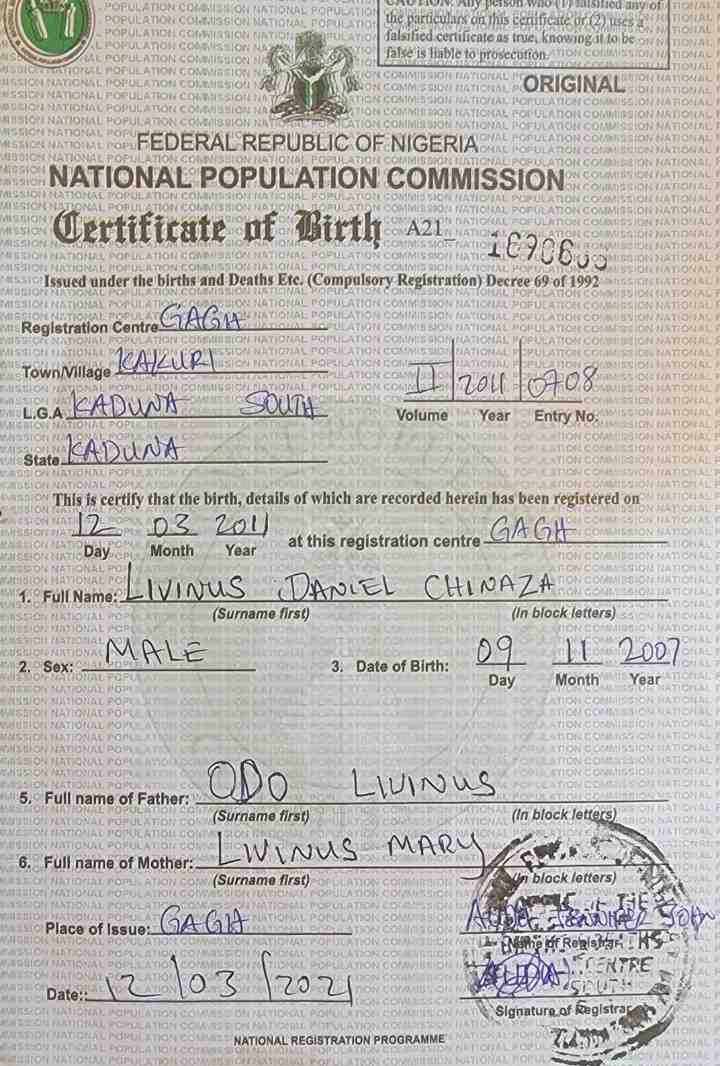 CAUTION: Any person who (1) falsified any of
the particulars on this certificate or (2) uses a
falsified certificate as true, knowing it to be
false is liable to prosecution.
ORIGINAL
FEDERAL REPUBLIC OF NIGERIA
NATIONAL POPULATION COMMISSION
Certificate of Birth A21
Issued under the births and Deaths Etc. (Compulsory Registration) Decree 69 of 1992
Registration Centre GAGH
Town/Village KAKURI
II 2011 0708
L.G.A KADUNA SOUTH
Volume Year Entry No.
State KADUNA
This is certify that the birth, details of which are recorded herein has been registered on
12 03 2011 at this registration centre GAGH
Day Month Year
1. Full Name: LIVINUS DANIEL CHINAZA
(Surname first) (In block letters)
2. Sex: MALE 3. Date of Birth: 09 11 2007
Day Month Year
5. Full name of Father: ODO LIVINUS
(Surname first) (In block letters)
6. Full name of Mother: LIVINUS MARY
(Surname first) (In block letters)
Place of Issue: GAGH
JOHN
Name of Registrar
Date:: 12/03/2021
CENTRE
SOUTH
Signature of Registrar
NATIONAL REGISTRATION PROGRAMME